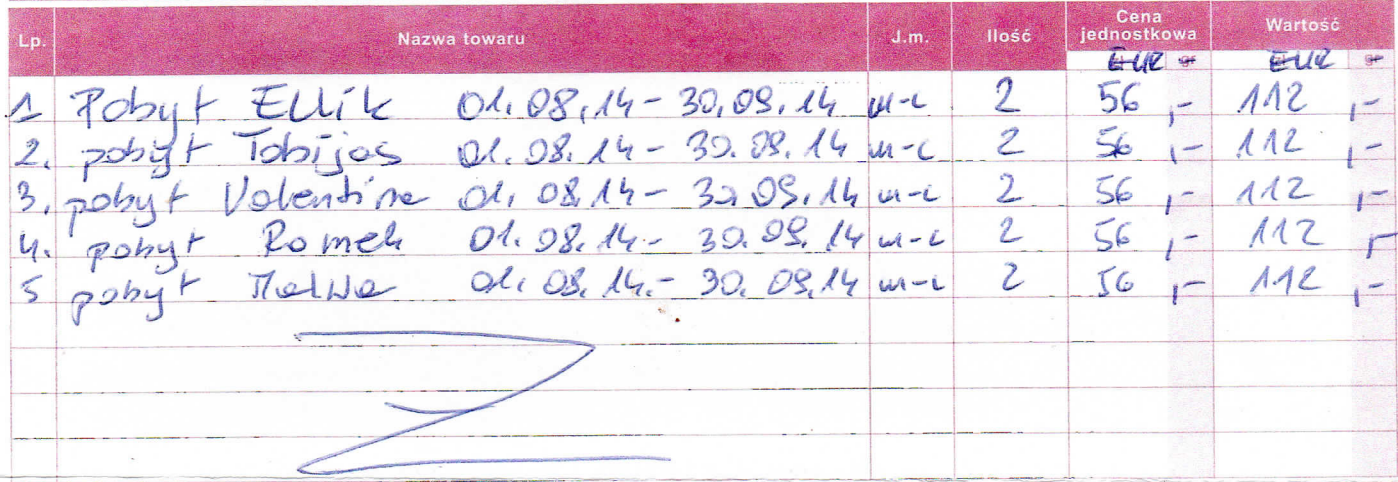 Lp. Nazwa towaru J.m. Ilość Cena jednostkowa Wartość
EUR gr EUR gr
1 Pobyt Ellik 01.08.14 - 30.09.14 m-c 2 56,- 112,-
2. pobyt Tobijas 01.08.14 - 30.09.14 m-c 2 56,- 112,-
3. pobyt Valentina 01.08.14 - 30.09.14 m-c 2 56,- 112,-
4. pobyt Romek 01.08.14 - 30.09.14 m-c 2 56,- 112,-
5 pobyt Malwa 01.08.14 - 30.09.14 m-c 2 56,- 112,-